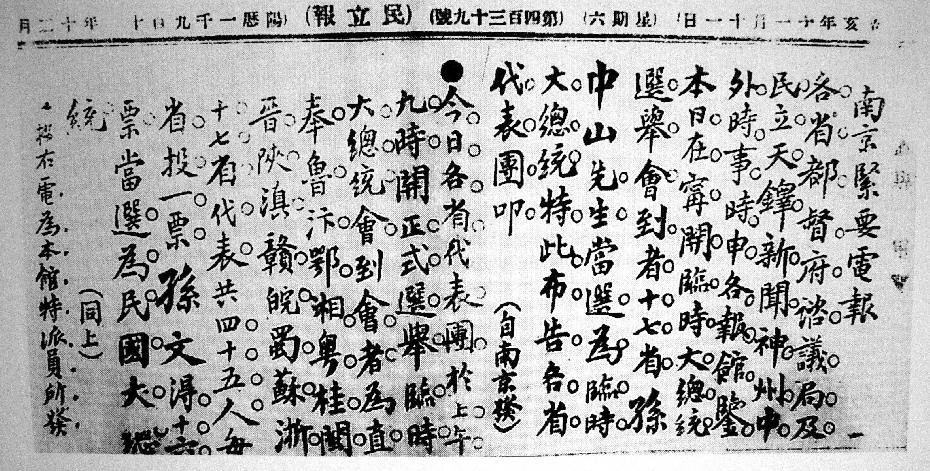 亥年十一月十一日(星期六)(第四百三十九號)(民立報)(陽歷一千九百十 年十二月
南京緊要電報
各省都督府諮議局及
民立天鐸新聞神州中
外時事時申各報館鑒
本日在甯開臨時大總統
選舉會到者十七省孫
中山先生當選為臨時
大總統特此布告各省
代表團叩 (自南京發)
●今日各省代表團於上午
九時開正式選舉臨時
大總統會到會者為直
奉魯汴鄂湘粵桂閩
晉陝滇贛皖蜀蘇浙
十七省代表共四十五人每
省投一票孫文得十六
票當選為民國大總
統 (同上)
按右電為本館特派員所發